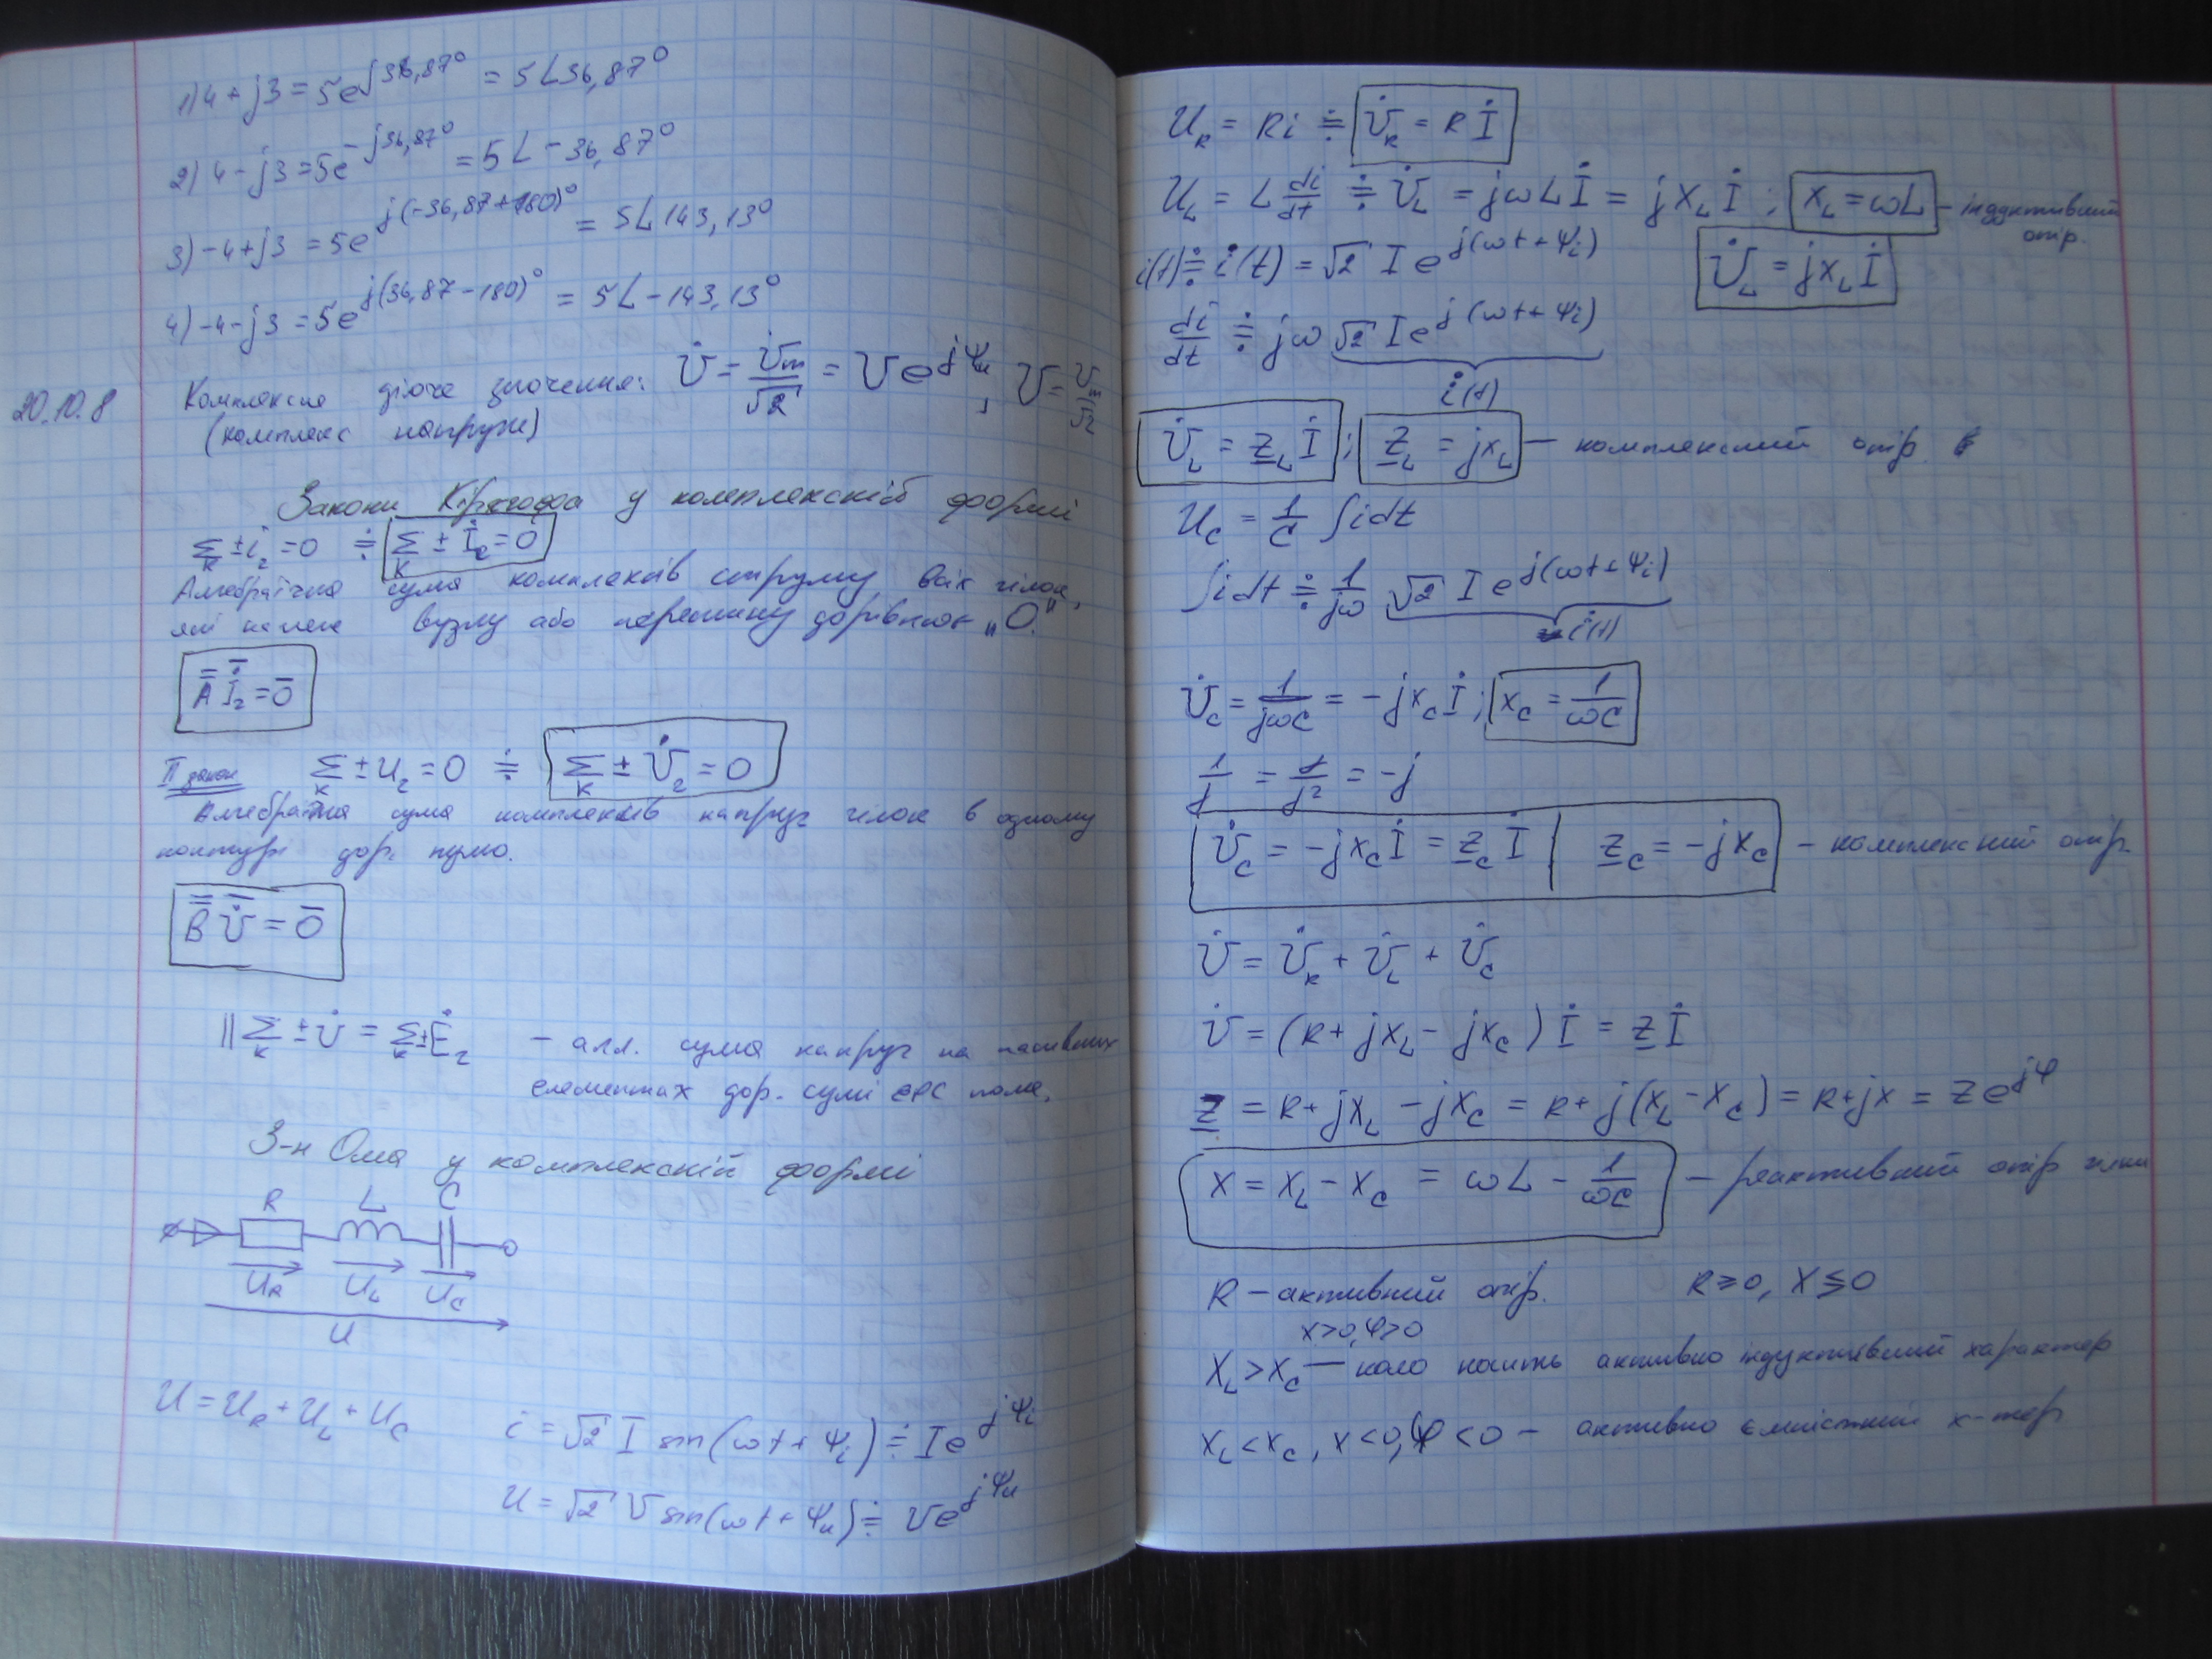 1) 4 + j3 = 5e^{j36,87°} = 5∠36,87°
2) 4 - j3 = 5e^{-j36,87°} = 5∠-36,87°
3) -4 + j3 = 5e^{j(-36,87+180)°} = 5∠143,13°
4) -4 - j3 = 5e^{j(36,87-180)°} = 5∠-143,13°
20.10.8
Комплексне діюче значення: U̇ = U̇m/√2 = Ue^{jψu}, U = Um/√2
(комплекс напруги)
Закони Кірхгофа у комплексній формі
Σ_K ± i_г = 0 ≑ Σ_K ± İ_г = 0
Алгебраїчна сума комплексів струму всіх гілок,
які вузлу або перетину дорівнює „0."
A İ_г = 0
II закон Σ_K ± u_г = 0 ≑ Σ_K ± U̇_г = 0
Алгебраїчна сума комплексів напруг гілок в одному
контурі дор. нулю.
B U̇ = 0
|| Σ_K ± U̇ = Σ_K ± Ė_г - алг. сума напруг на пасивних
елементах дор. сумі ЕРС
З-н Ома у комплексній формі
R L C
U_R U_L U_C
U
U = U_R + U_L + U_C
i = √2 I sin(ωt + ψi) ≑ Ie^{jψi}
U = √2 U sin(ωt + ψu) ≑ Ue^{jψu}
U_R = Ri ≑ U̇_R = R İ
U_L = L di/dt ≑ U̇_L = jωL İ = jX_L İ ; X_L = ωL - індуктивний
опір.
i(t) ≑ i̇(t) = √2 I e^{j(ωt + ψi)} U̇_L = jX_L İ
di/dt ≑ jω √2 I e^{j(ωt + ψi)}
i̇(t)
U̇_L = Z_L İ ; Z_L = jX_L — комплексний опір.
U_C = 1/C ∫idt
∫idt ≑ 1/jω √2 I e^{j(ωt + ψi)}
i̇(t)
U̇_C = 1/jωC = -jX_C İ ; X_C = 1/ωC
1/j = j/j² = -j
U̇_C = -jX_C İ = Z_C İ | Z_C = -jX_C - комплексний опір.
U̇ = U̇_R + U̇_L + U̇_C
U̇ = (R + jX_L - jX_C) İ = Z İ
Z = R + jX_L - jX_C = R + j(X_L - X_C) = R + jX = Z e^{jφ}
X = X_L - X_C = ωL - 1/ωC - реактивний опір гілки
R - активний опір. R ⩾ 0, X ≶ 0
X>0, φ>0
X_L > X_C — коло активно індуктивний характер
X_L < X_C, X < 0, φ < 0 - активно ємнісний х-тер